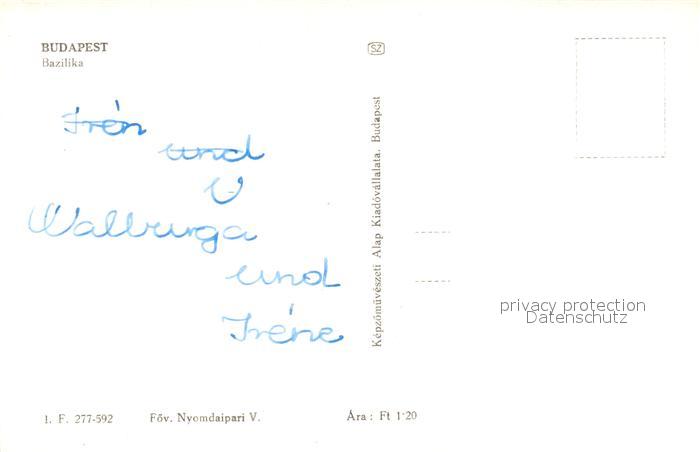 BUDAPEST
Bazilika
SZ
Irén
und
U
Walburga
und
Iréne
Képzőművészeti Alap Kiadóvállalata, Budapest
privacy protection
Datenschutz
I. F. 277-592 Főv. Nyomdaipari V. Ára: Ft 1·20